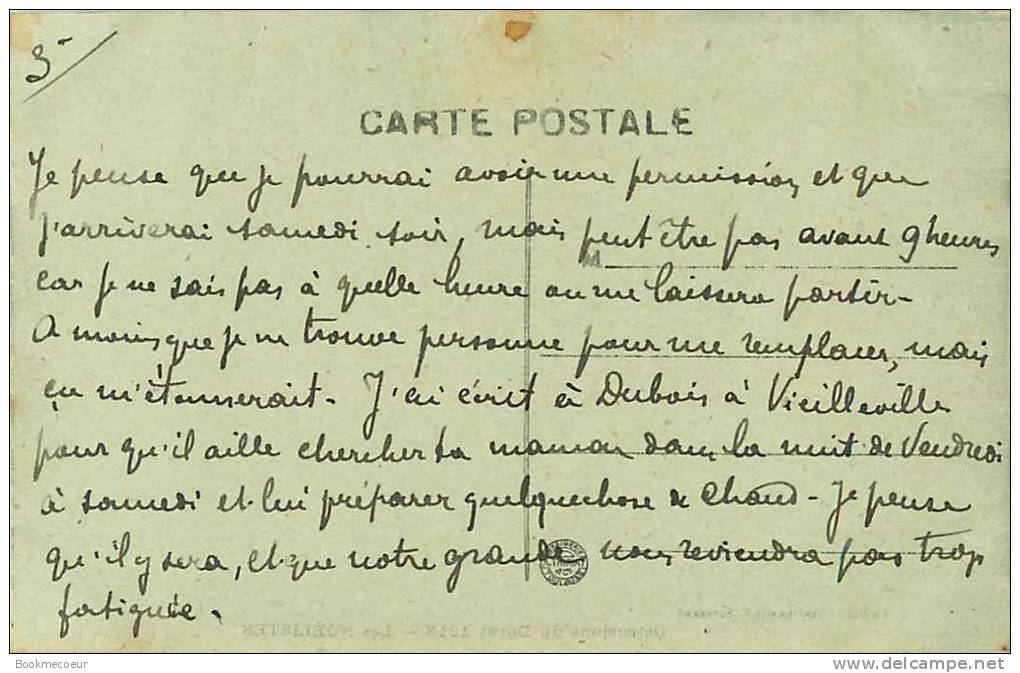 3-
CARTE POSTALE
Je pense que je pourrai avoir une permission et que
j'arriverai samedi soir, mais peut être pas avant 9 heures
car je ne sais pas à quelle heure on me laissera partir -
A moins que je ne trouve personne pour me remplacer, mais
ça m'étonnerait - J'ai écrit à Dubois à Vieilleville
pour qu'il aille chercher ta maman dans la nuit de Vendredi
à samedi et lui préparer quelquechose de chaud - Je pense
qu'il y sera, et que notre grande nous reviendra pas trop
fatiguée.
Ostensions du Dorat 1918 - Les NOËLISTES
Bookmecoeur
www.delcampe.net